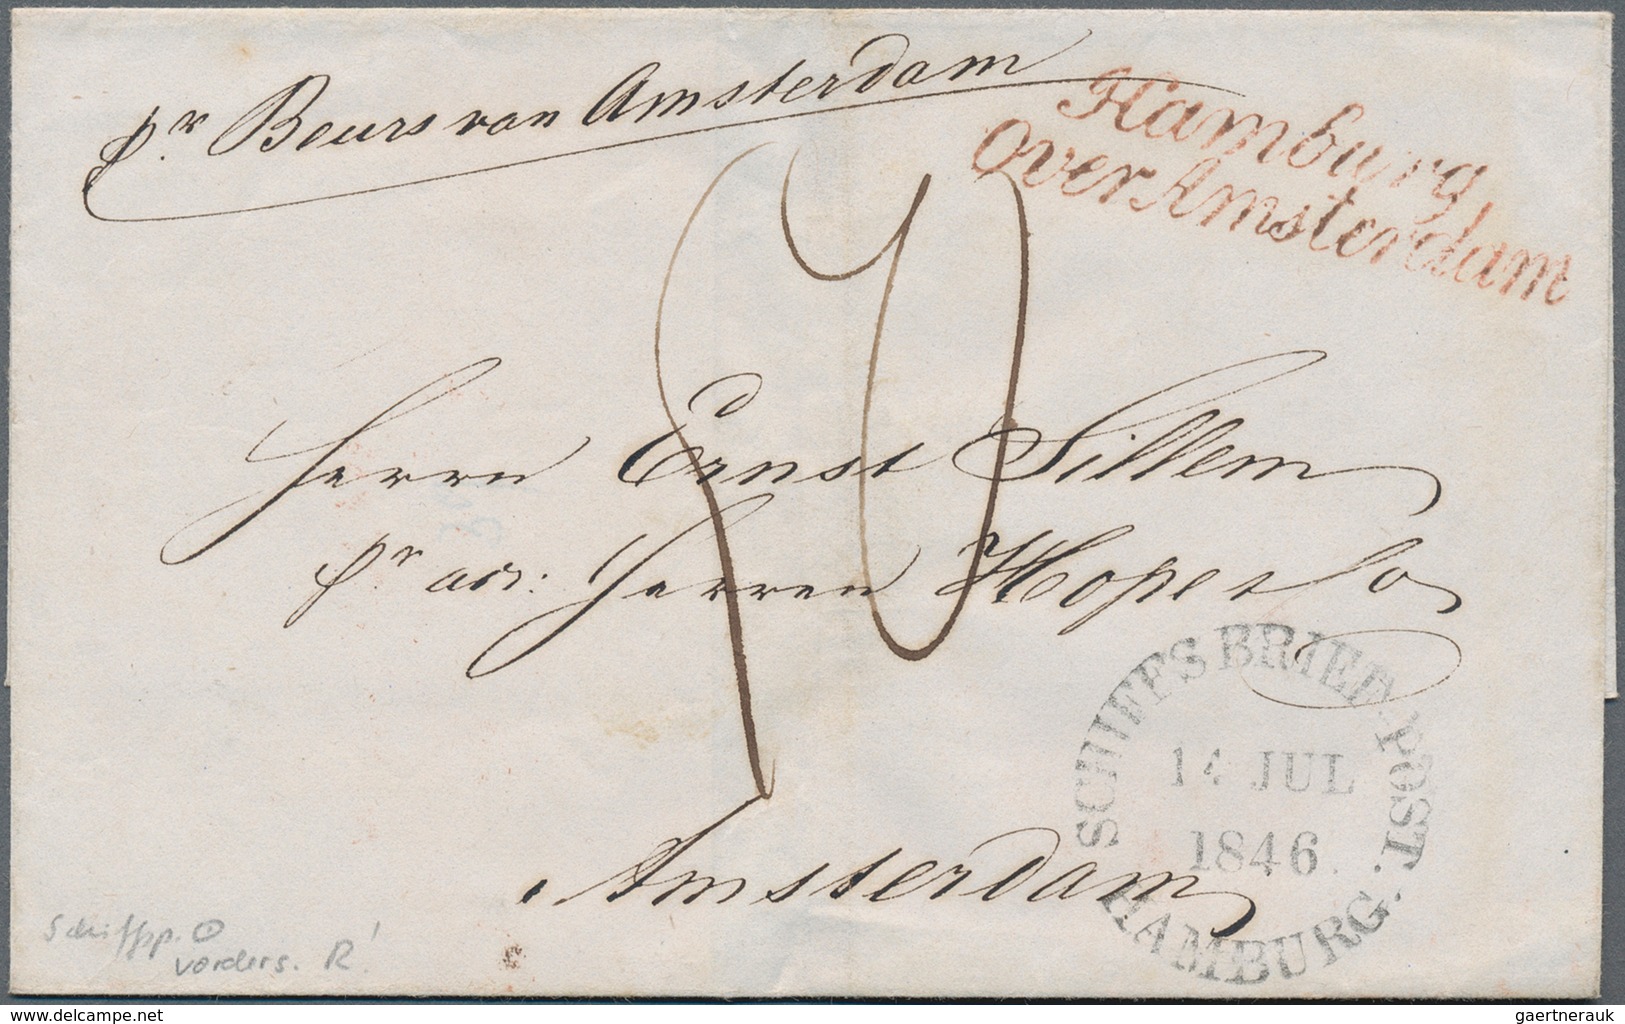 pr Beurs van Amsterdam
Hamburg
Over Amsterdam
Herrn Ernst Sillem
pr adr: Herren Hope & Co
Amsterdam
SCHIFFS BRIEF-POST.
14 JUL
1846.
HAMBURG.
Schiffsp.
vorders. R!
www.delcampe.net
gaertnerauk